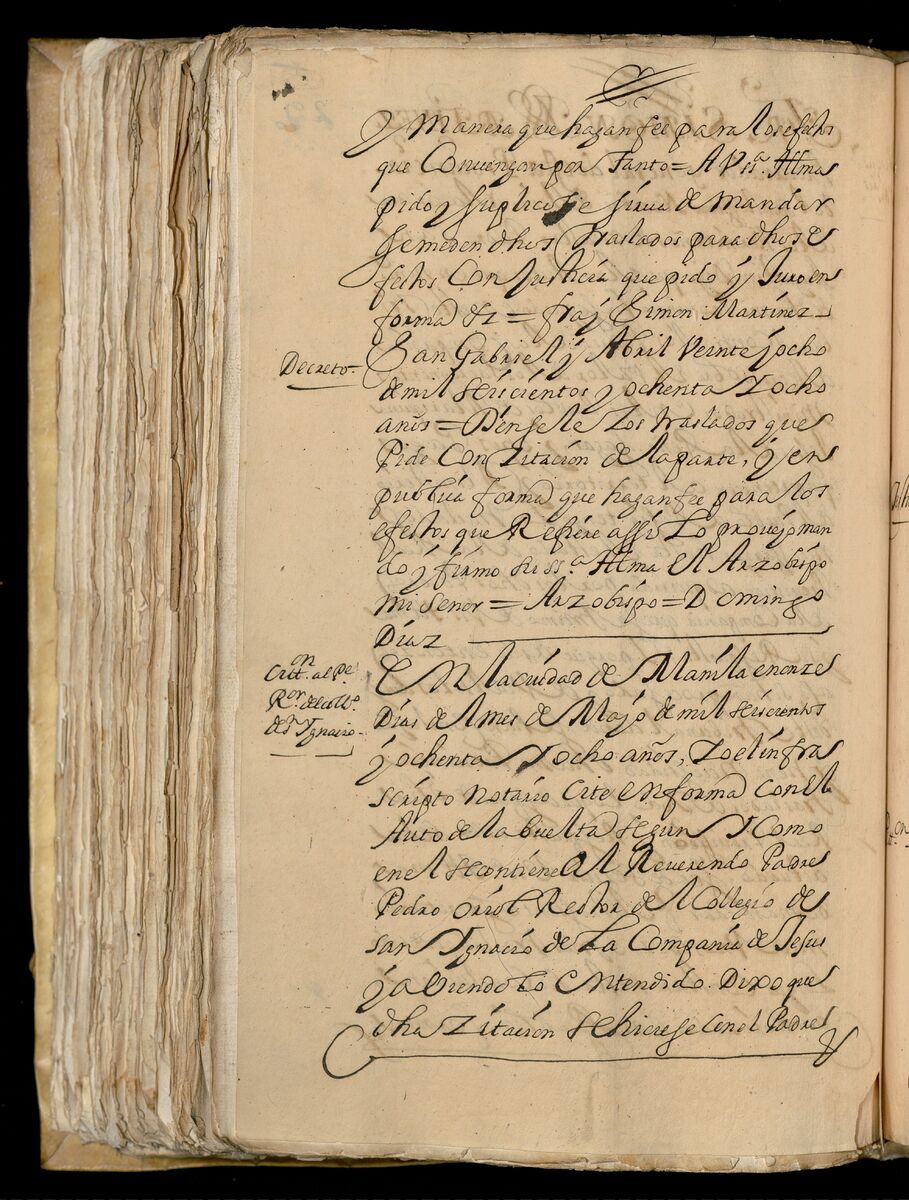 y Manera que hagan fee para los efectos
que Convengan por Tanto = A Vssª. Illma
pido y suplico se sirva de mandar
se me den dhos Traslados para dhos e
fectos Con Justicia que pido y Juro en
forma &ª = fray Simon Martinez _
Decreto.
San Gabriel y Abril Veinte y ocho
de mil seiscientos y ochenta y ocho
años = Densele Los traslados que
Pide Con Zitacion de la parte, y en
publica forma que hagan fee para los
efectos que Refiere assi Lo proveyo man
do y firmo su ssª. Illma El Arzobispo
mi señor = Arzobispo = Domingo
Diaz
Citt.on al Pe
R.or del coll.o
de sn Ygnacio
En la ciudad de Manila en onze
Dias del mes de Mayo de mil seiscientos
y ochenta y ocho años, Yo el infras
scripto Notario Cite en forma con el
Auto de la buelta segun y Como
en el se contiene Al Reverendo Padre
Pedro Oriol Rector del Collegio de
san Ygnacio de La Compañia de Jesus
y aviendolo Entendido. Dixo que
dha Zitacion se hiciese con el Padre